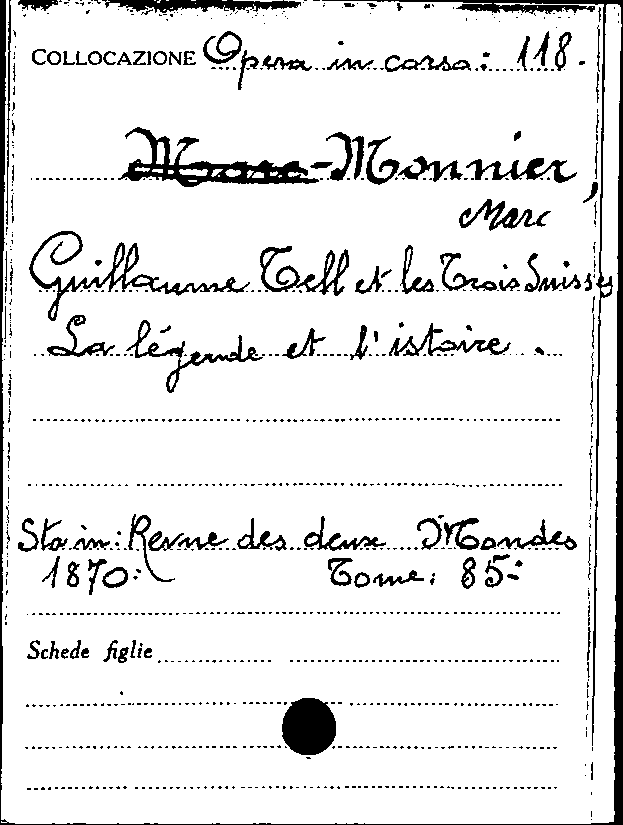 COLLOCAZIONE Opera in corso: 118.
Marc-Monnier,
Marc
Guillaume Tell et les Trois Suisses
La légende et l'istoire.
Sta in: Revue des deux Mondes
1870: Tome: 85:
Schede figlie